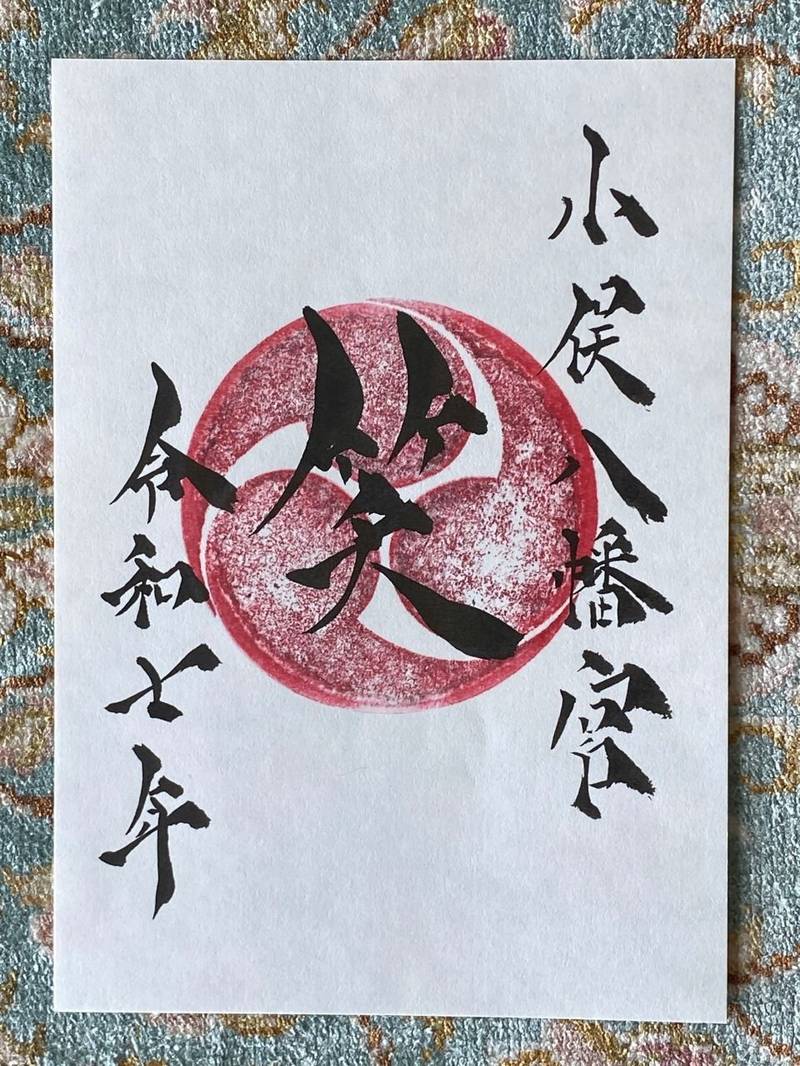 小俣八幡宮
笑
令和七年